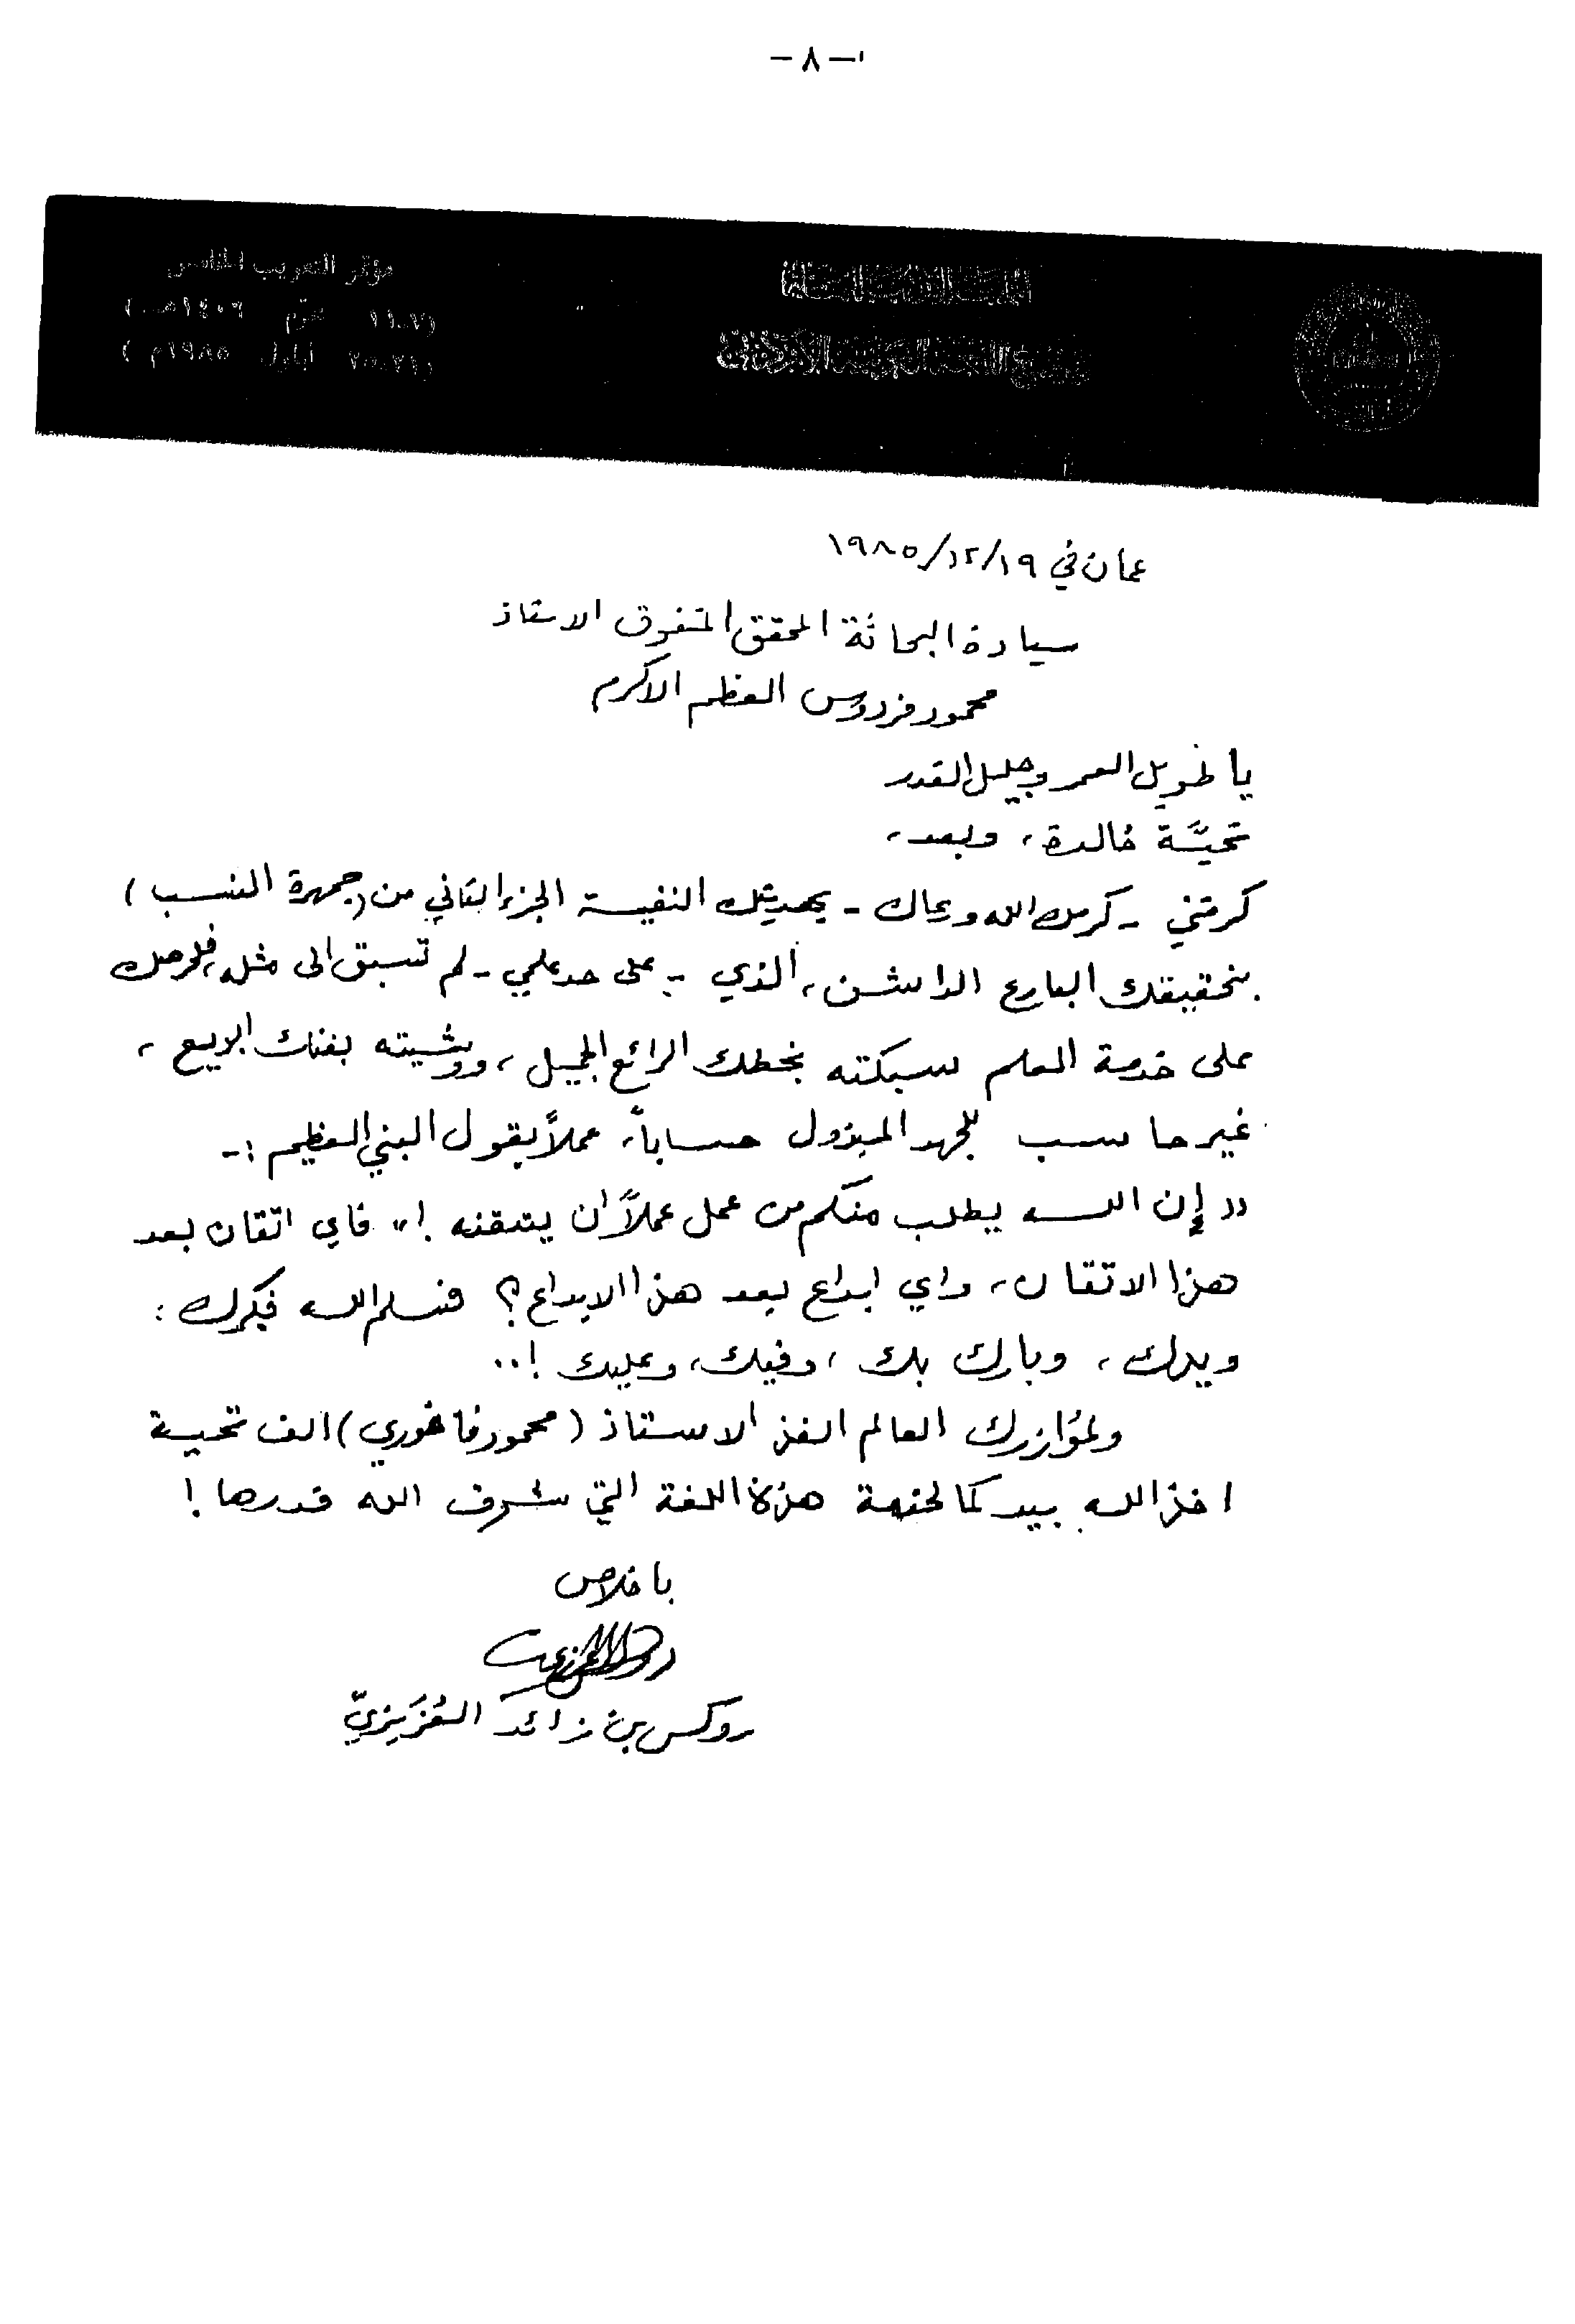 - ٨ -
مؤتمر التعريب الخامس
محرم ١٤٠٦هـ )
أيلول ١٩٨٥م )
مجمع اللغة العربية الأردني
عمان في ١٩/١٢/١٩٨٥
سيادة البحاثة المحقق المتفوق الاستاذ
محمود فردوس العظم الاكرم
يا طويل العمر وجليل القدر
تحيَّة خالدة، وبعد،
كرمتني - كرمك الله ورعاك - بهديتك النفيسة الجزء الثاني من (جمهرة النسب)
بتحقيقك البارع الراشن، الذي - على حد علمي - لم تسبق الى مثله، فلحرصك
على خدمة العلم سبكته بخطك الرائع الجميل، ووشيته بفنك البديع،
غير حاسب للجهد المبذول حساباً، عملاً بقول النبي العظيم :-
(( إن الله يطلب منكم من عمل عملاً ان يتقنه !)) فاي اتقان بعد
هذا الاتقان، واي ابداع بعد هذا الابداع؟ فسلم الله فكرك :
ويدك، وبارك بك، وفيك، وعليك !..
ولمؤازرك العالم الفذ الاستاذ (محمود فاخوري) الف تحية
اخذ الله بيدكما لخدمة هذه اللغة التي شرف الله قدرها !
باخلاص
روكس بن زائد العُزَيزيّ